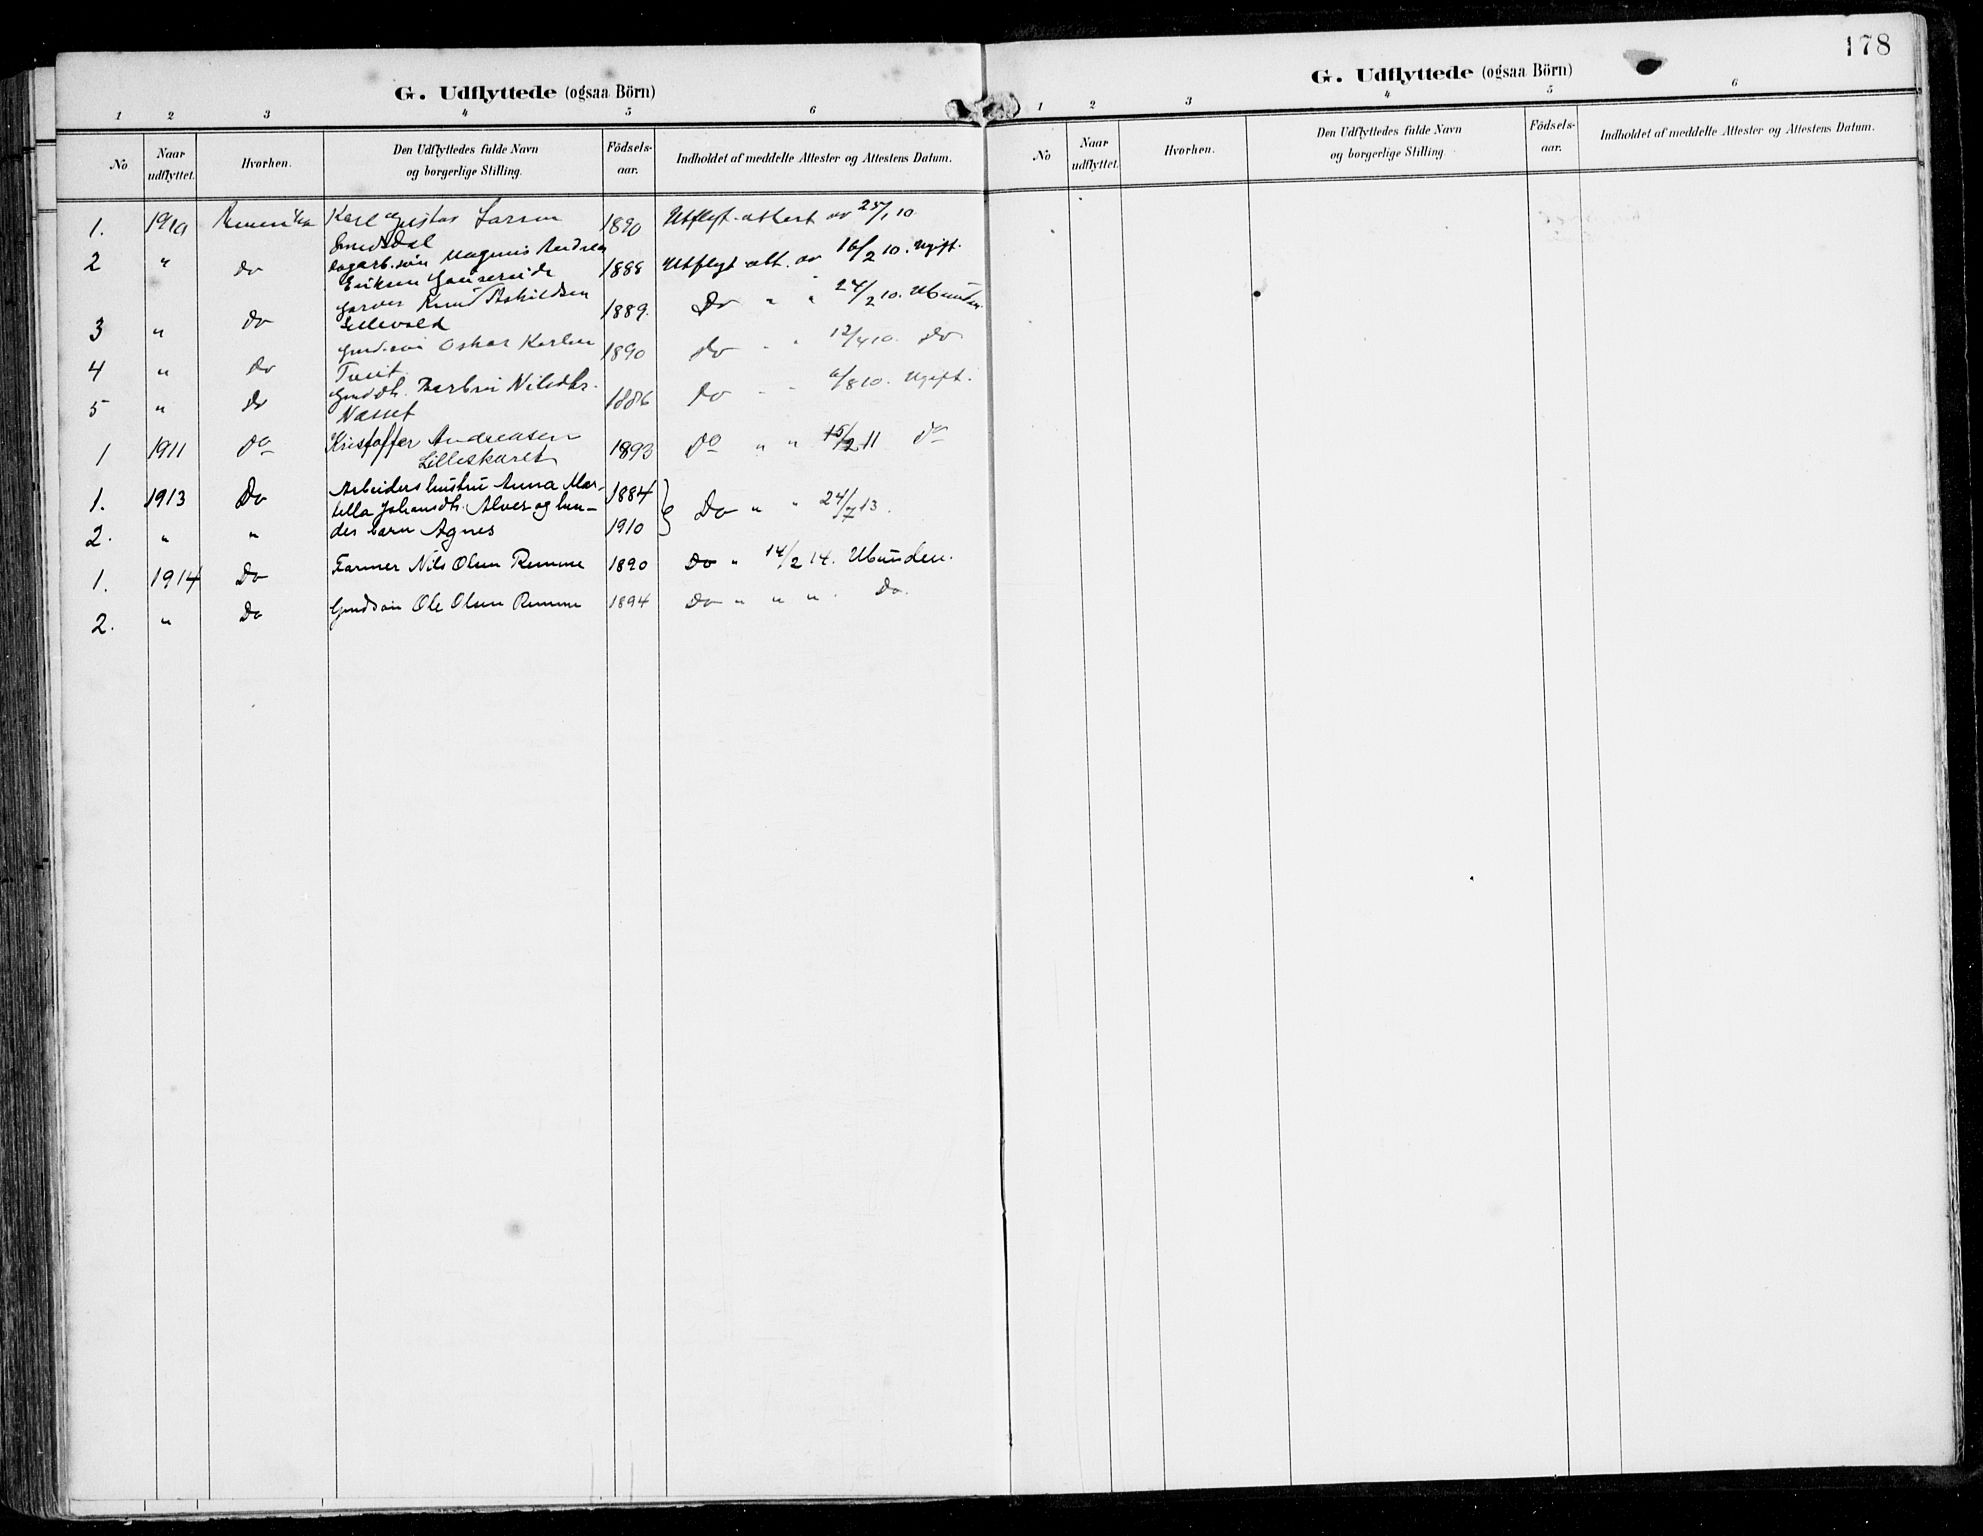 G. Udflyttede (ogsaa Börn)
1 2 3 4 5 6
No Naar udflyttet. Hvorhen. Den Udflyttedes fulde Navn og borgerlige Stilling. Födsels-aar. Indholdet af meddelte Attester og Attestens Datum.
1. 1910 Amerika Karl Gustav Larsen 1890 Utflyt. attest av 25/1 10
2 " do Magnus Andreas 1888 Utflyt att. av 16/2 10. Ugift.
Eriksen
3 " do Knut Askildsen 1889. Do " " 24/2 10. Ubunden
4 " do Oskar Karlsen 1890 do " " 12/4 10. do
Tveit
5 " do Nilsdtr. 1886 Do " 6/8 10. Ugift.
Næsset
1 1911 do Kristoffer Andreasen 1893 do " " 15/2 11 do
Lilleskaret
1. 1913 Do Arbeiders hustru Anna Mar- 1884 Do " " 24/7 13.
tella Johansdtr. Alver og hen-
2. " " des barn Agnes 1910
1. 1914 Do Farmer Nils Olsen Remme 1890 Do " 14/2 14. Ubunden.
2. " Do Gmdsøn Ole Olsen Remme 1894 Do " " " Do.
178
G. Udflyttede (ogsaa Börn)
1 2 3 4 5 6
No Naar udflyttet. Hvorhen. Den Udflyttedes fulde Navn og borgerlige Stilling. Födsels-aar. Indholdet af meddelte Attester og Attestens Datum.